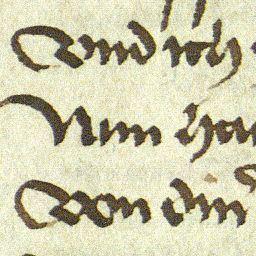 Vnd ich
Nun ha
Von din